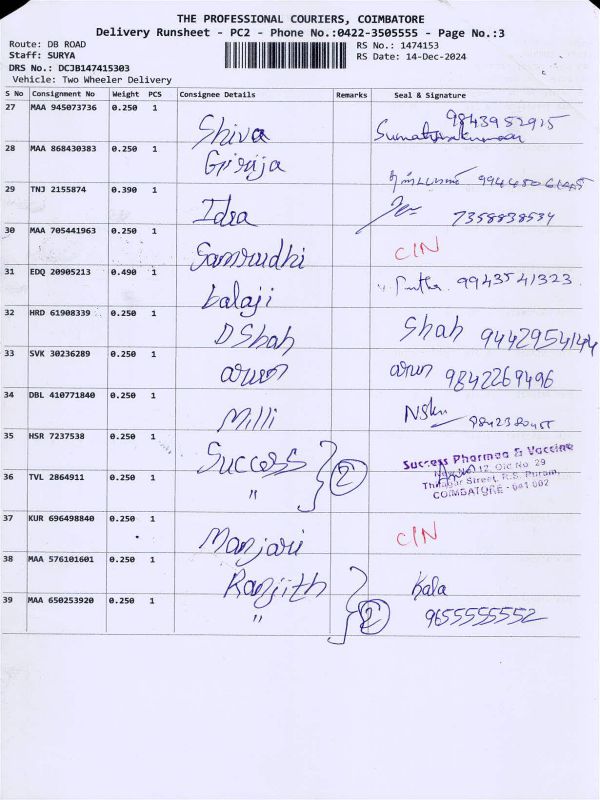 THE PROFESSIONAL COURIERS, COIMBATORE
Delivery Runsheet - PC2 - Phone No.:0422-3505555 - Page No.:3
Route: DB ROAD
Staff: SURYA
DRS No.: DCJB147415303
Vehicle: Two Wheeler Delivery
RS No.: 1474153
RS Date: 14-Dec-2024
S No Consignment No Weight PCS Consignee Details Remarks Seal & Signature
27 MAA 945073736 0.250 1 Shiva 9843952915
28 MAA 868430383 0.250 1 Girija
29 TNJ 2155874 0.390 1 Idea 7358838534
30 MAA 705441963 0.250 1 Samrudhi CIN
31 EDQ 20905213 0.490 1 balaji 9943541323
32 HRD 61908339 0.250 1 D Shah Shah 9442954144
33 SVK 30236289 0.250 1 arun arun 9842269496
34 DBL 410771840 0.250 1 Milli
35 HSR 7237538 0.250 1 Success 2 Success Pharmea & Vaccine
New No 12, Old No. 29
36 TVL 2864911 0.250 1 " Street, R.S. Puram,
COIMBATORE - 641 002
37 KUR 696498840 0.250 1 Manjari CIN
38 MAA 576101601 0.250 1 Ranjith 2 Kala
39 MAA 650253920 0.250 1 " 9655555552